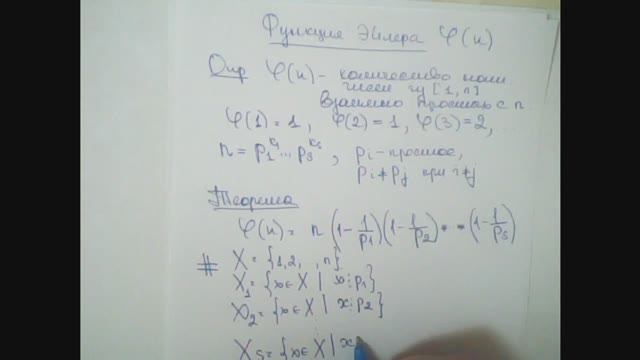 Функция Эйлера φ(n)
Опр φ(n) - количество нат
чисел из [1, n]
взаимно простых с n
φ(1) = 1, φ(2) = 1, φ(3) = 2,
n = p₁^k₁ ... p_s^k_s, p_i - простое,
p_i ≠ p_j при i ≠ j
Теорема
φ(n) = n (1 - 1/p₁)(1 - 1/p₂) · · (1 - 1/p_s)
# X = {1, 2, , n}
X₁ = {x ∈ X | x ⋮ p₁}
X₂ = {x ∈ X | x ⋮ p₂}
X_s = {x ∈ X | x